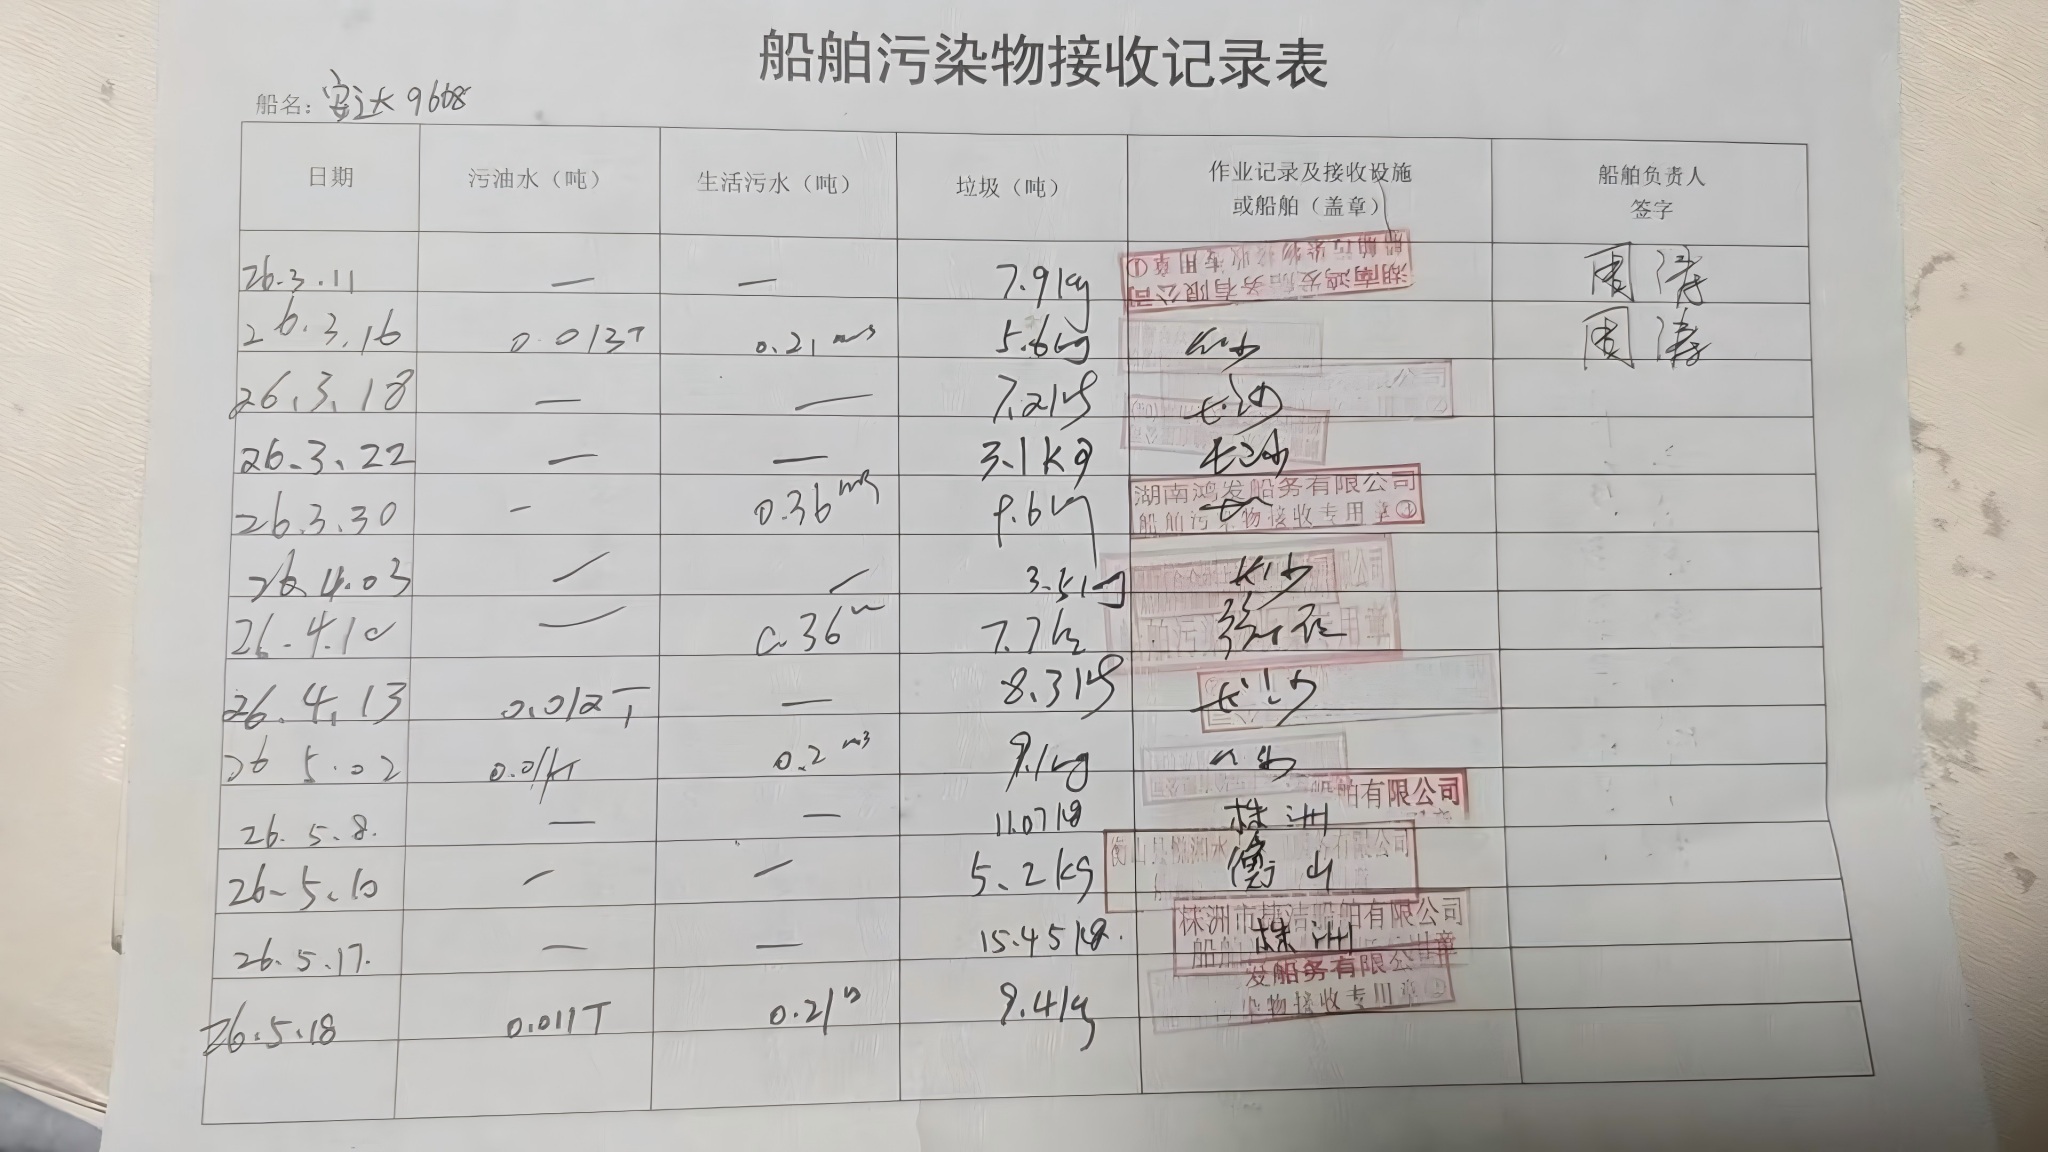 船舶污染物接收记录表
船名：安达9668
日期 污油水（吨） 生活污水（吨） 垃圾（吨） 作业记录及接收设施或船舶（盖章） 船舶负责人签字
26.3.11 — — 7.9kg 湖南鸿发船务有限公司 船舶污染物接收专用章① 周涛
26.3.16 0.013T 0.21m³ 5.6kg 长沙 周涛
26.3.18 — — 7.2kg 长沙
26.3.22 — — 3.1kg 长沙
26.3.30 — 0.36m³ 9.6kg 湖南鸿发船务有限公司 船舶污染物接收专用章①
26.4.03 — — 长沙
26.4.10 — 0.36 7.7kg
26.4.13 0.012T — 8.3kg 长沙
26 5.02 0.2m³ 9.1kg 船舶有限公司
26.5.8. — — 11.07kg 株洲
26-5.10 — — 5.2kg 衡山
26.5.17. — — 15.45kg. 株洲 船舶有限公司
26.5.18 0.011T 0.21 9.4kg 发船务有限公司 染物接收专用章